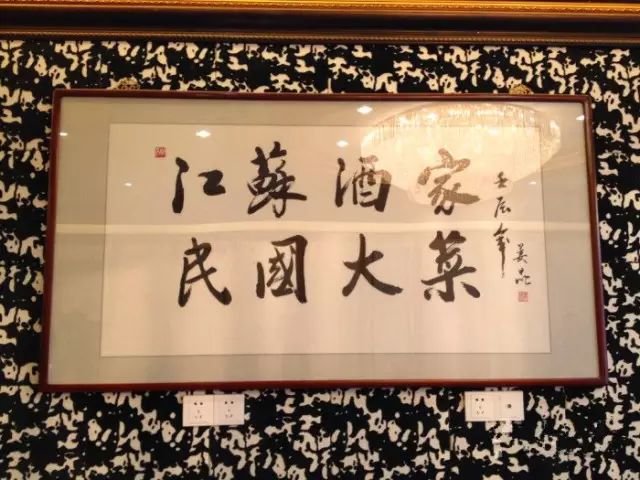 江蘇酒家
民國大菜
壬辰年